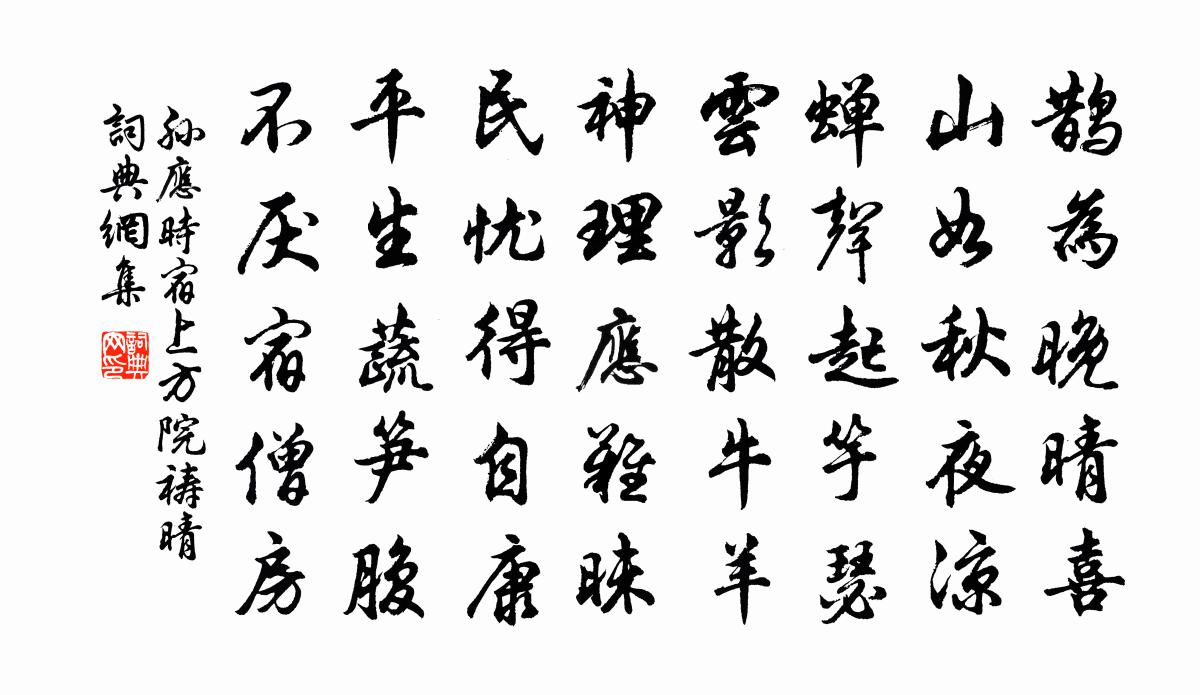 鹊為晚晴喜
山如秋夜涼
蝉聲起竽瑟
雲影散牛羊
神理應難昧
民忧得自康
平生蔬笋腹
不厌宿僧房
孙應時宿上方院祷晴
詞典網集
詞典